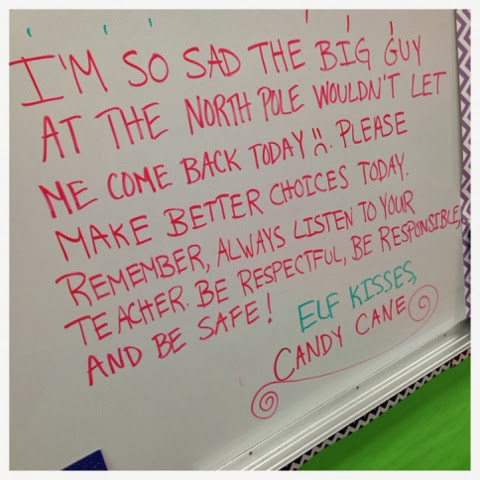 I'M SO SAD THE BIG GUY
AT THE NORTH POLE WOULDN'T LET
ME COME BACK TODAY ☹. PLEASE
MAKE BETTER CHOICES TODAY.
REMEMBER, ALWAYS LISTEN TO YOUR
TEACHER. BE RESPECTFUL, BE RESPONSIBLE,
AND BE SAFE!
ELF KISSES,
CANDY CANE